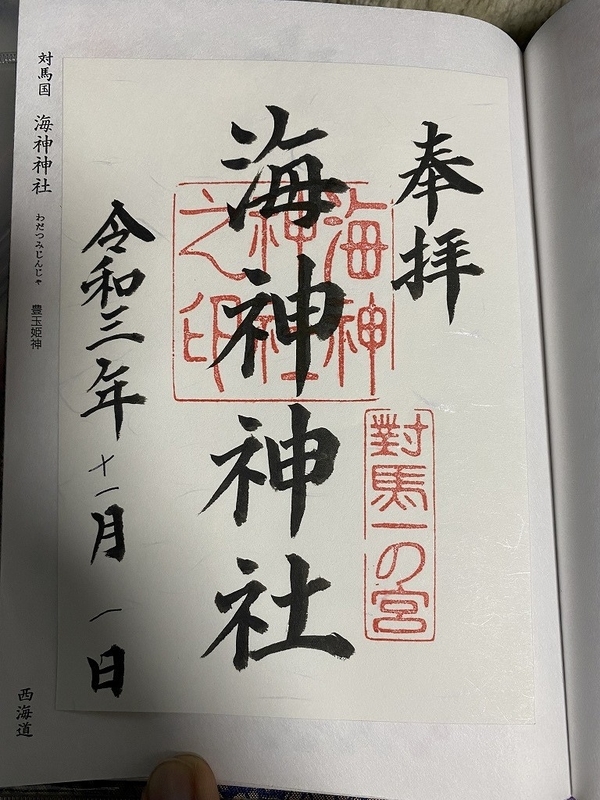 奉拝
對馬一の宮
海神神社
海神神社之印
令和三年十一月一日
対馬国 海神神社 わだつみじんじゃ 豊玉姫神
西海道